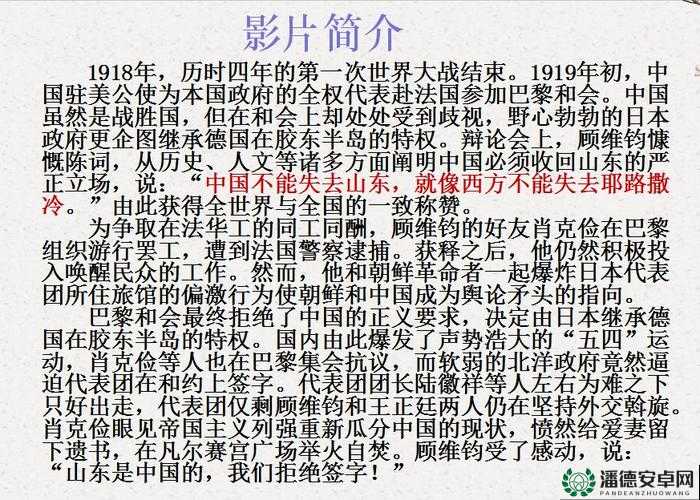 影片简介
1918年，历时四年的第一次世界大战结束。1919年初，中
国驻美公使为本国政府的全权代表赴法国参加巴黎和会。中国
虽然是战胜国，但在和会上却处处受到歧视，野心勃勃的日本
政府更企图继承德国在胶东半岛的特权。辩论会上，顾维钧慷
慨陈词，从历史、人文等诸多方面阐明中国必须收回山东的严
正立场，说：“中国不能失去山东，就像西方不能失去耶路撒
冷。”由此获得全世界与全国的一致称赞。
为争取在法华工的同工同酬，顾维钧的好友肖克俭在巴黎
组织游行罢工，遭到法国警察逮捕。获释之后，他仍然积极投
入唤醒民众的工作。然而，他和朝鲜革命者一起爆炸日本代表
团所住旅馆的偏激行为使朝鲜和中国成为舆论矛头的指向。
巴黎和会最终拒绝了中国的正义要求，决定由日本继承德
国在胶东半岛的特权。国内由此爆发了声势浩大的“五四”运
动，肖克俭等人也在巴黎集会抗议，而软弱的北洋政府竟然逼
迫代表团在和约上签字。代表团团长陆徽祥等人左右为难之下
只好出走，代表团仅剩顾维钧和王正廷两人仍在坚持外交斡旋。
肖克俭眼见帝国主义列强重新瓜分中国的现状，愤然给爱妻留
下遗书，在凡尔赛宫广场举火自焚。顾维钧受了感动，说：
“山东是中国的，我们拒绝签字！”
潘德安卓网
PANDEANZHUOWANG